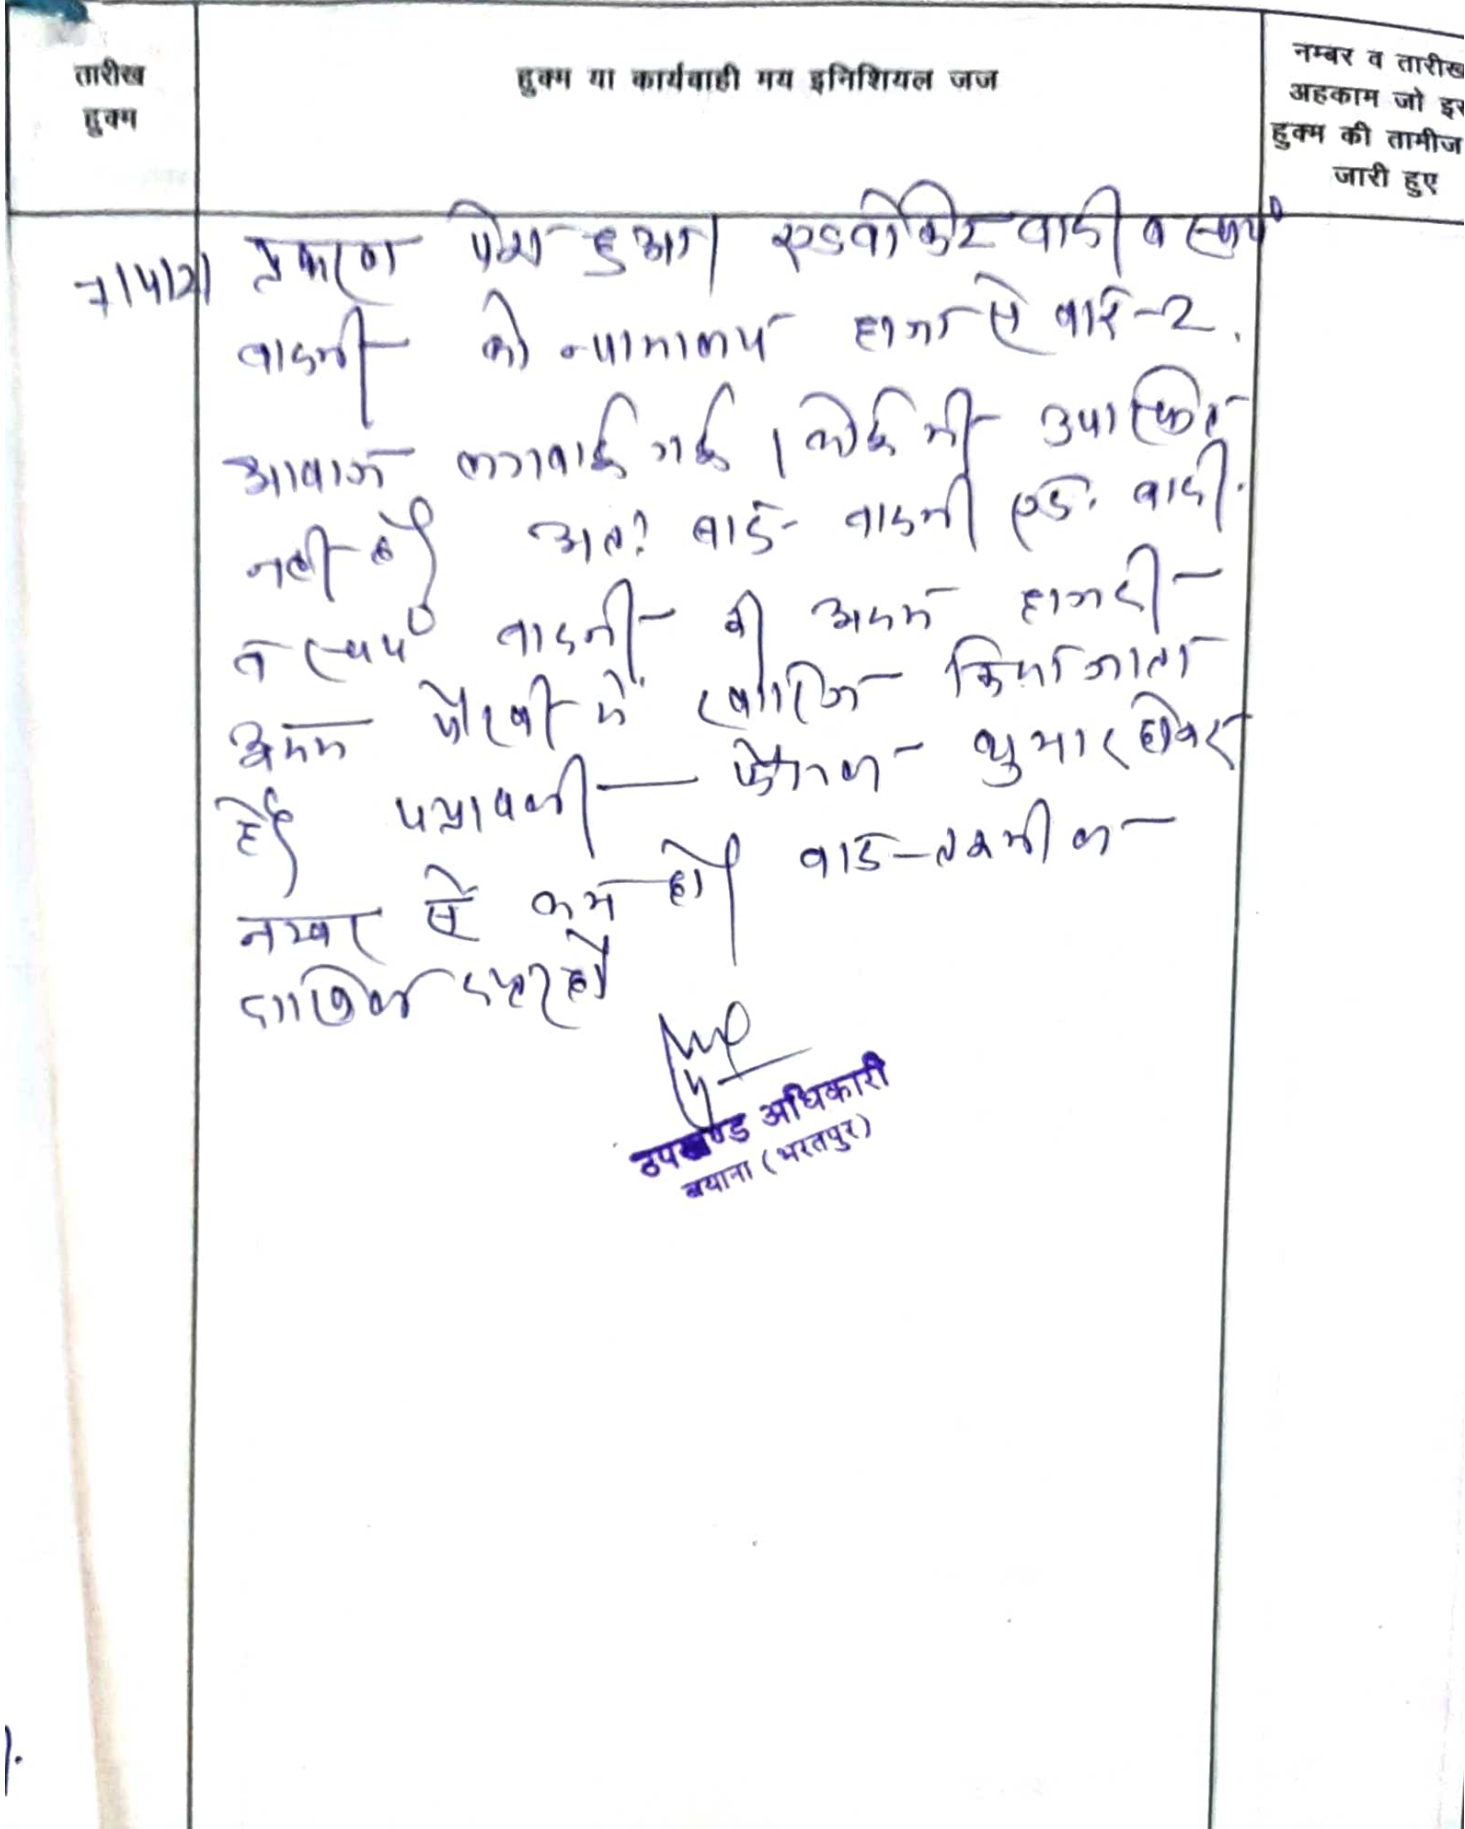 तारीख
हुक्म
हुक्म या कार्यवाही मय इनिशियल जज
नम्बर व तारीख
अहकाम जो इस
हुक्म की तामील
जारी हुए
7/4/21
प्रकरण पेश हुआ। एडवोकेट वादी व स्वयं
वादनी को न्यायालय हाजा से बाई-2
आवाज लगवाई गई। कोई भी उपस्थित
नहीं है। अतः वाद वादनी एड. वादी
व स्वयं वादनी की अदम हाजरी
अदम पैरवी में खारिज किया जाता
है। पत्रावली फैसल शुमार होकर
नम्बर से कम हो। बाद तकमील
दाखिल दफ्तर हो।
उपखण्ड अधिकारी
बयाना (भरतपुर)